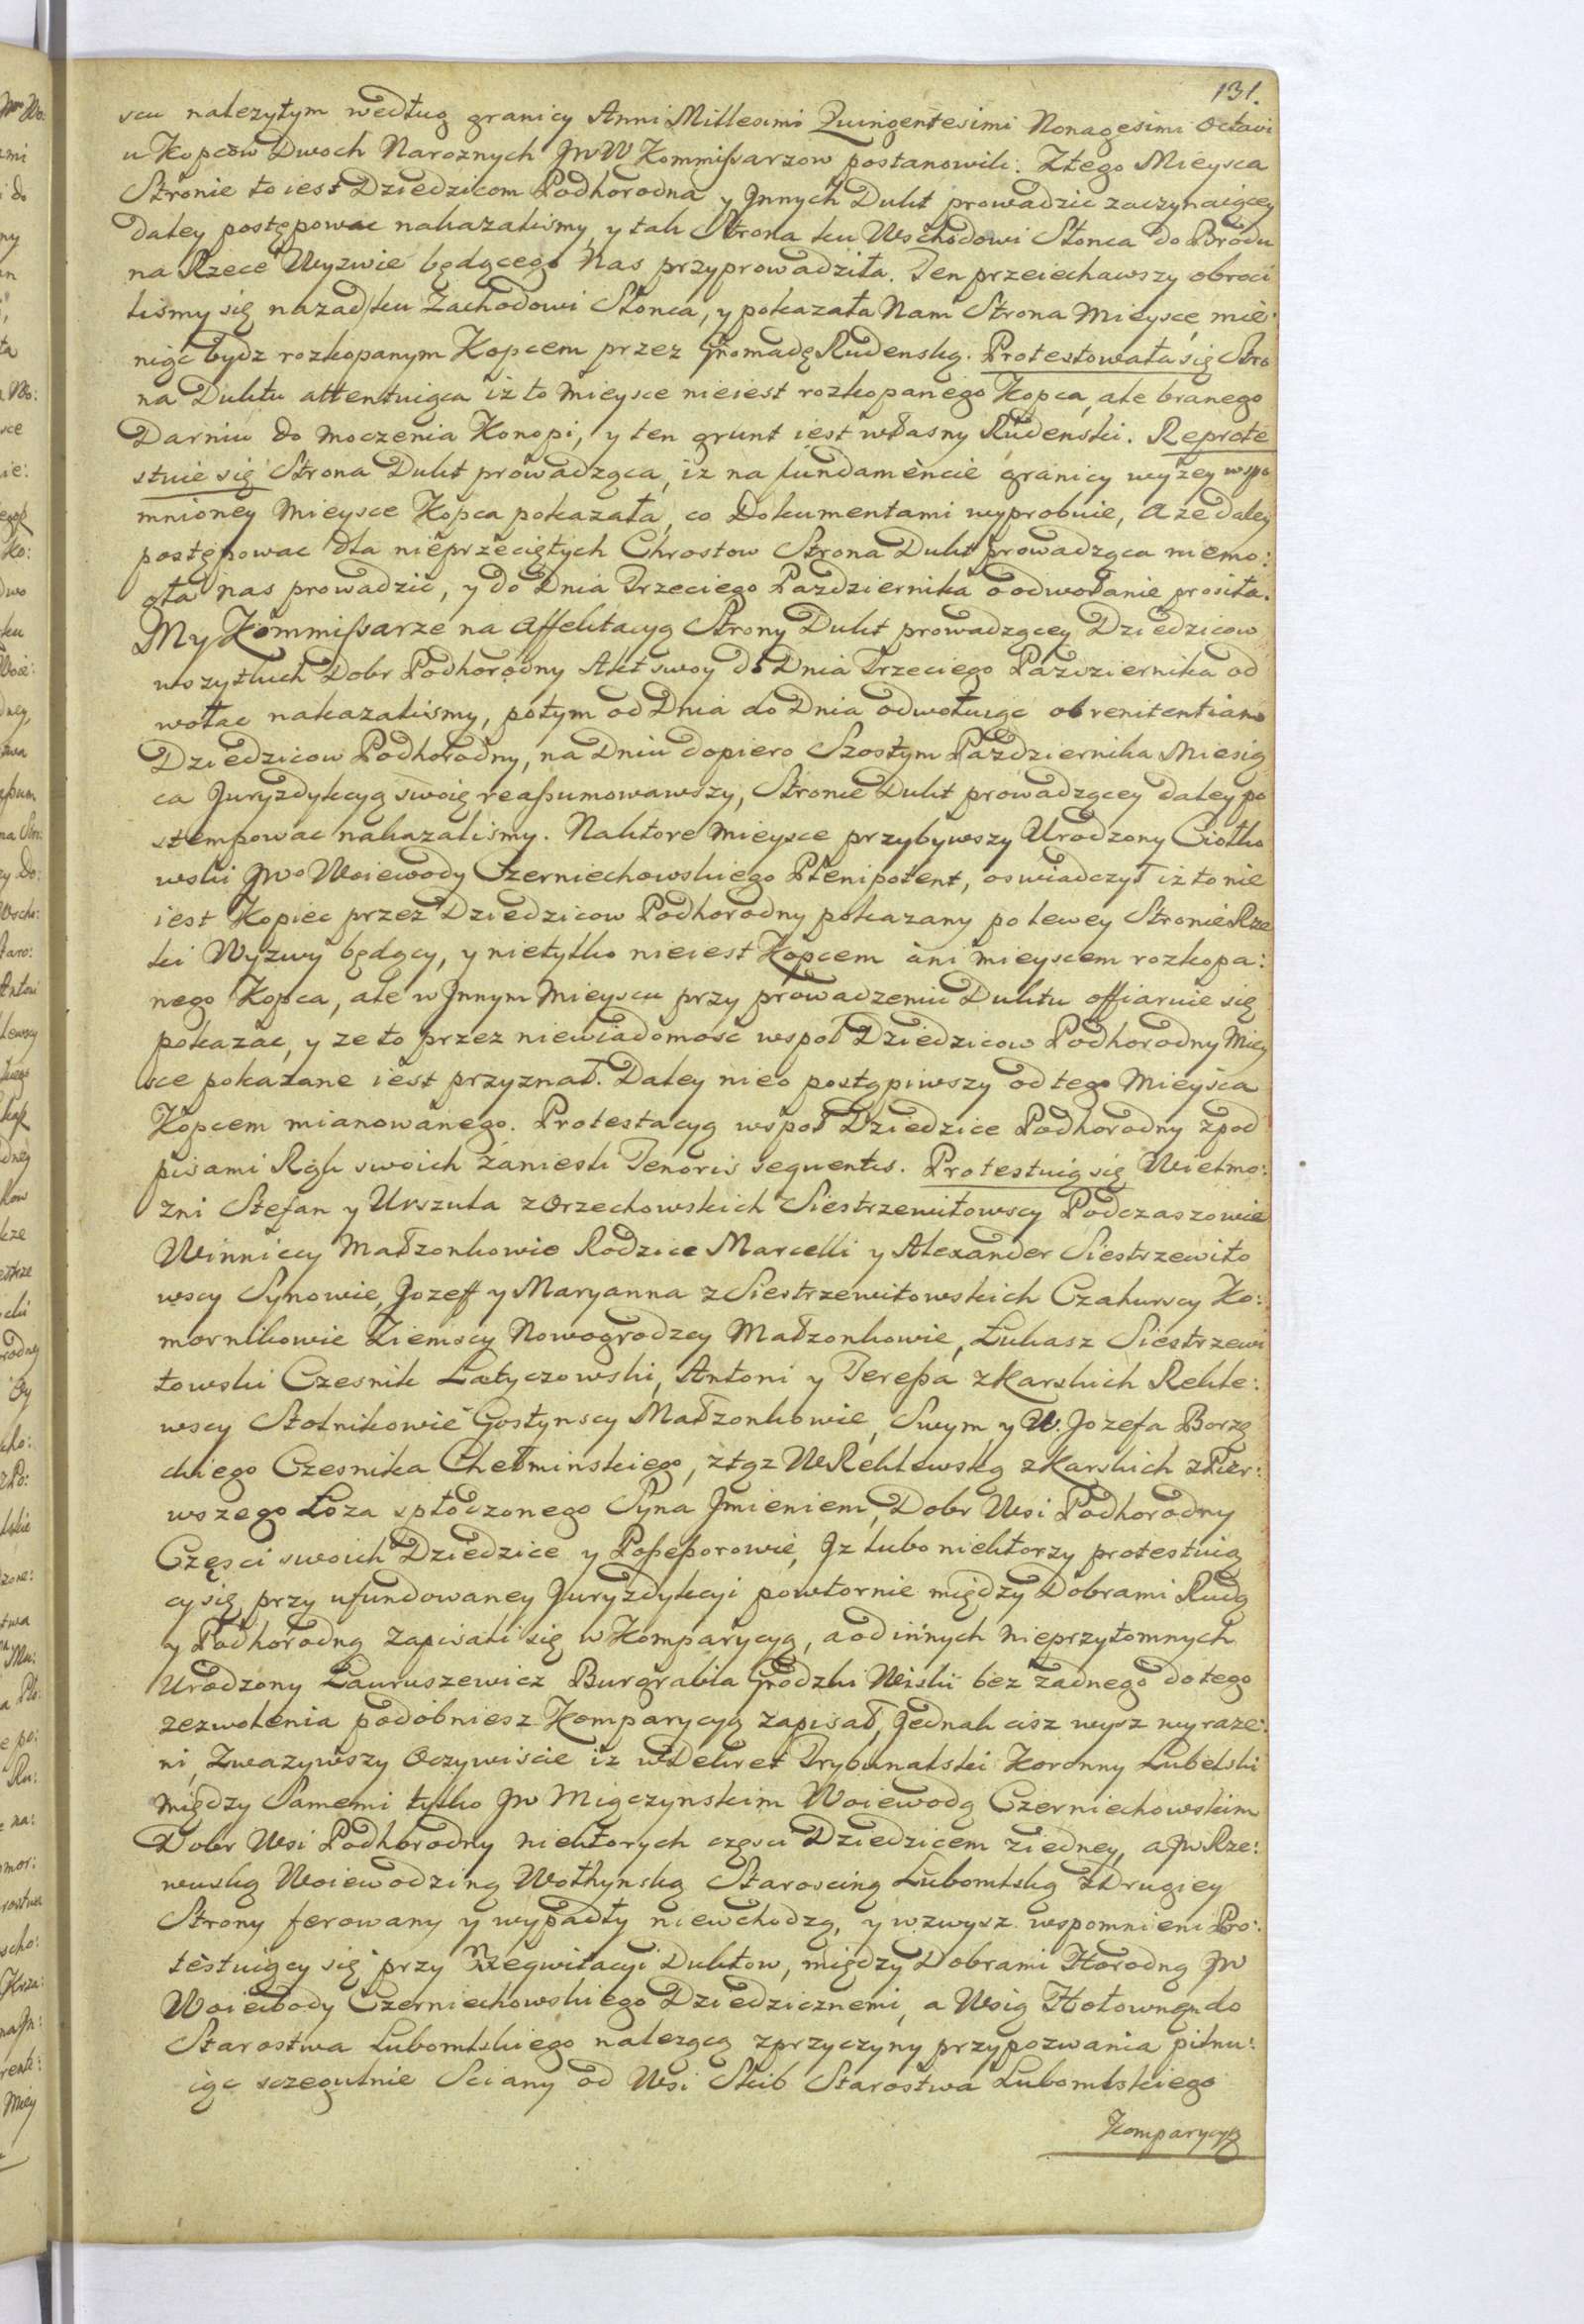 131.
scu nalezytym według granicy Anni Millesimi Quingentesimi Nonagesimi Octavi
u Kopcow Dwoch Naroznych JWW Kommissarzow postanowili. Ztego Mieysca
Stronie to iest Dziedzicom Podhorodna y Jnnych Dukt prowadzic zaczynaiącey
daley postępowac nakazalismy, y tak Strona ku Wschodowi Słonca do Brodu
na Rzece Wyzwie będącego Nas przyprowadziła. Ten przeiechawszy obroci
lismy się nazad ku Zachodowi Słonca, y pokazała Nam Strona Mieysce, mie:
niąc bydz rozkopanym Kopcem przez Gromadę Rudenską. Protestowała się Stro
na Duktu attentuiąca iz to Mieysce nieiest rozkopanego Kopca, ale branego
Darniu do moczenia Konopi, y ten grunt iest własny Rudenski. Reprote
stuie się Strona Dukt prowadząca, iz na fundamencie granicy wyzey wspo
mnioney Mieysce Kopca pokazała, co Dokumentami wyprobuie, A ze daley
postępowac dla nieprzeciętych Chrostow Strona Dukt prowadząca niemo:
gła nas prowadzic, y do Dnia Trzeciego Pazdziernika o odwołanie prosiła.
My Kommissarze na affektacyą Strony Dukt prowadzącey Dziedzicow
wszytkich Dobr Podhorodny Akt swoy do Dnia Trzeciego Pazdziernika od
wołac nakazalismy, potym od Dnia do Dnia odwołuiąc ob renitentiam
Dziedzicow Podhorodny, na Dniu dopiero Szostym Pazdziernika Miesią
ca Juryzdykcyą swoię reassumowawszy, Stronie Dukt prowadzącey daley po
stempowac nakazalismy. Naktore Mieysce przybywszy Urodzony Ciołko
wski JWo Woiewody Czerniechowskiego Plenipotent, oswiadczył iz to nie
iest Kopiec przez Dziedzicow Podhorodny pokazany po lewey Stronie Rze
ki Wyzwy będący, y nietylko nieiest Kopcem ani mieyscem rozkopa:
nego Kopca, ale w Jnnym Mieyscu przy prowadzeniu Duktu offiaruie się
pokazac, y ze to przez niewiadomosc wspoł Dziedzicow Podhorodny Miey
sce pokazane iest przyznał. Daley nieo postąpiwszy od tego Mieysca
Kopcem mianowanego. Protestacyą wspoł Dziedzice Podhorodny zpod
pisami Rąk swoich zaniesli Tenoris sequentis. Protestuią się Wielmo:
zni Stefan y Urszula z Orzechowskich Siestrzewitowscy Podczaszowie
Winniccy Małzonkowie Rodzice Marcelli y Alexander Siestrzewito
wscy Synowie, Jozeff y Maryanna z Siestrzewitowskich Czakurscy Ko:
mornikowie Ziemscy Nowogrodzcy Małzonkowie, Łukasz Siestrzewi
towski Czesnik Latyczowski, Antoni y Teressa z Karskich Rekle:
wscy Stolnikowie Gostynscy Małzonkowie, Swym y W. Jozefa Borzę
ckiego Czesnika Chełminskiego, ztąz W Reklewską z Karskich z Pier:
wszego Łoza spłodzonego Syna Jmieniem, Dobr Wsi Podhorodny
Częsci swoich Dziedzice y Possessorowie, Jz lubo niektorzy protestuią
cy się przy ufundowaney Juryzdykcyi powtornie między Dobrami Rudą
y Podhorodną zapisali się w Komparycyą, a od innych nieprzytomnych
Urodzony Lauruszewicz Burgrabia Grodzki Wiski bez zadnego do tego
zezwolenia podobniesz Komparycyą zapisał, Jednak cisz wysz wyraze:
ni, Zwazywszy Oczywiscie iz w Dekret Trybunalski Koronny Lubelski
Między Samemi tylko JW Miączynskim Woiewodą Czerniechowskim
Dobr Wsi Podhorodny niektorych częsci Dziedzicem ziedney, a JW Rze:
wuską Woiewodziną Wołhynską Starosciną Lubomlską z Drugiey
Strony ferowany y wypadły niewchodzą, y wzwysz wspomnieni Pro:
testuiący się przy Rzegwitacyi Duktow, między Dobrami Horodną JW
Woiewody Czerniechowskiego Dziedzicznemi, a Wsią Hołowną do
Starostwa Lubomlskiego nalezącą zprzyczyny przypozwania pilnu:
iąc sczegulnie Sciany od Wsi Skib Starostwa Lubomlskiego
Komparycyą